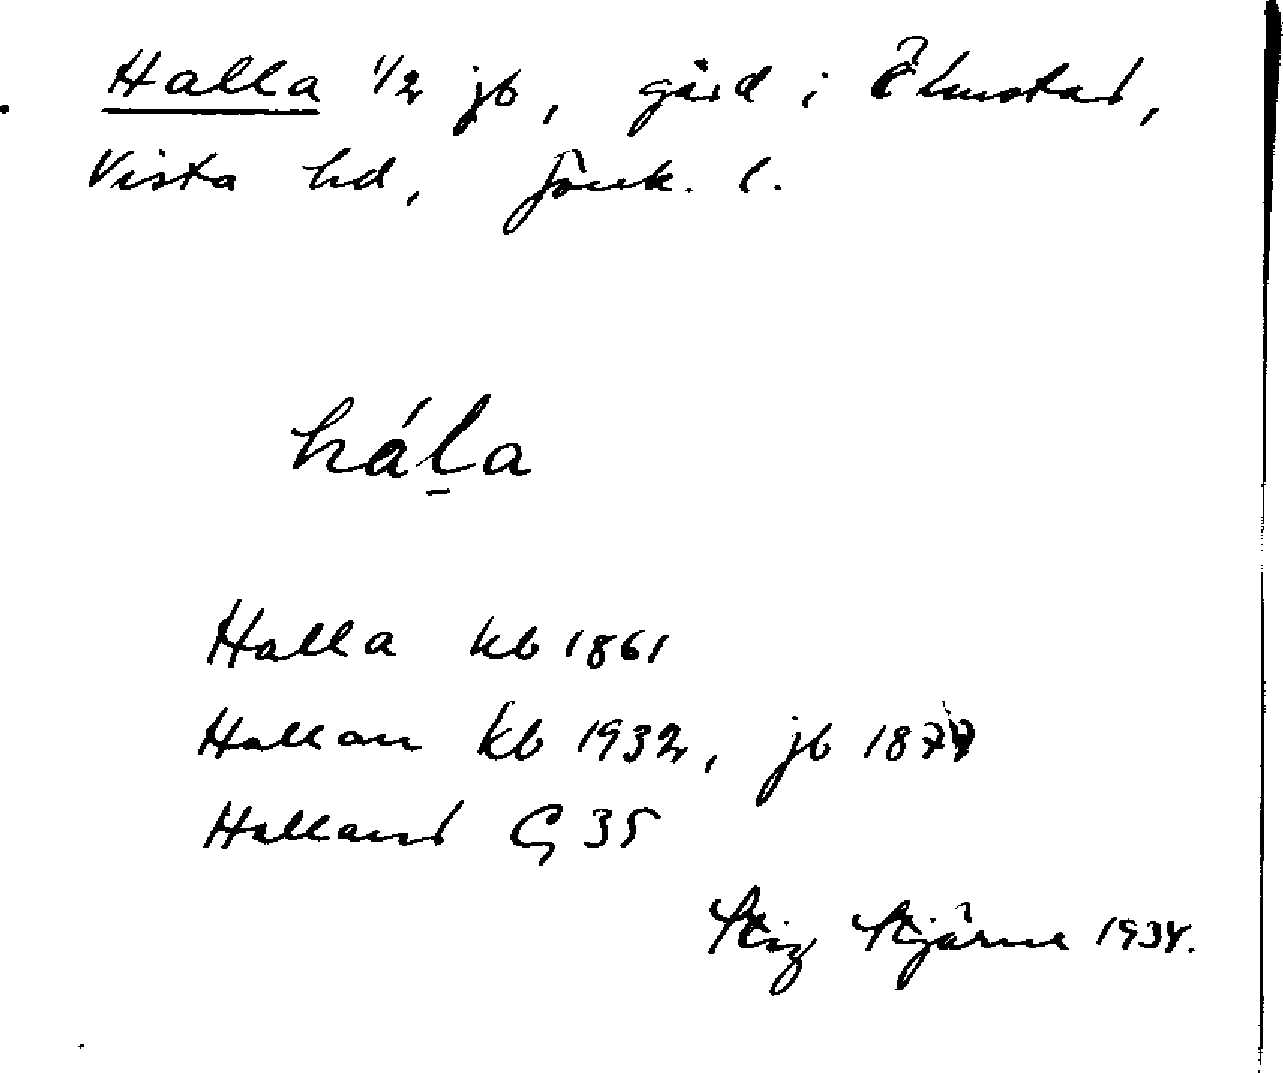 Halla 1/2 jb, gård i Ölmstad,
Vista hd, Jönk. l.
háḻa
Halla kb 1861
Hallan kb 1932, jb 1877
Halland G 35
Stig Stjärne 1934.